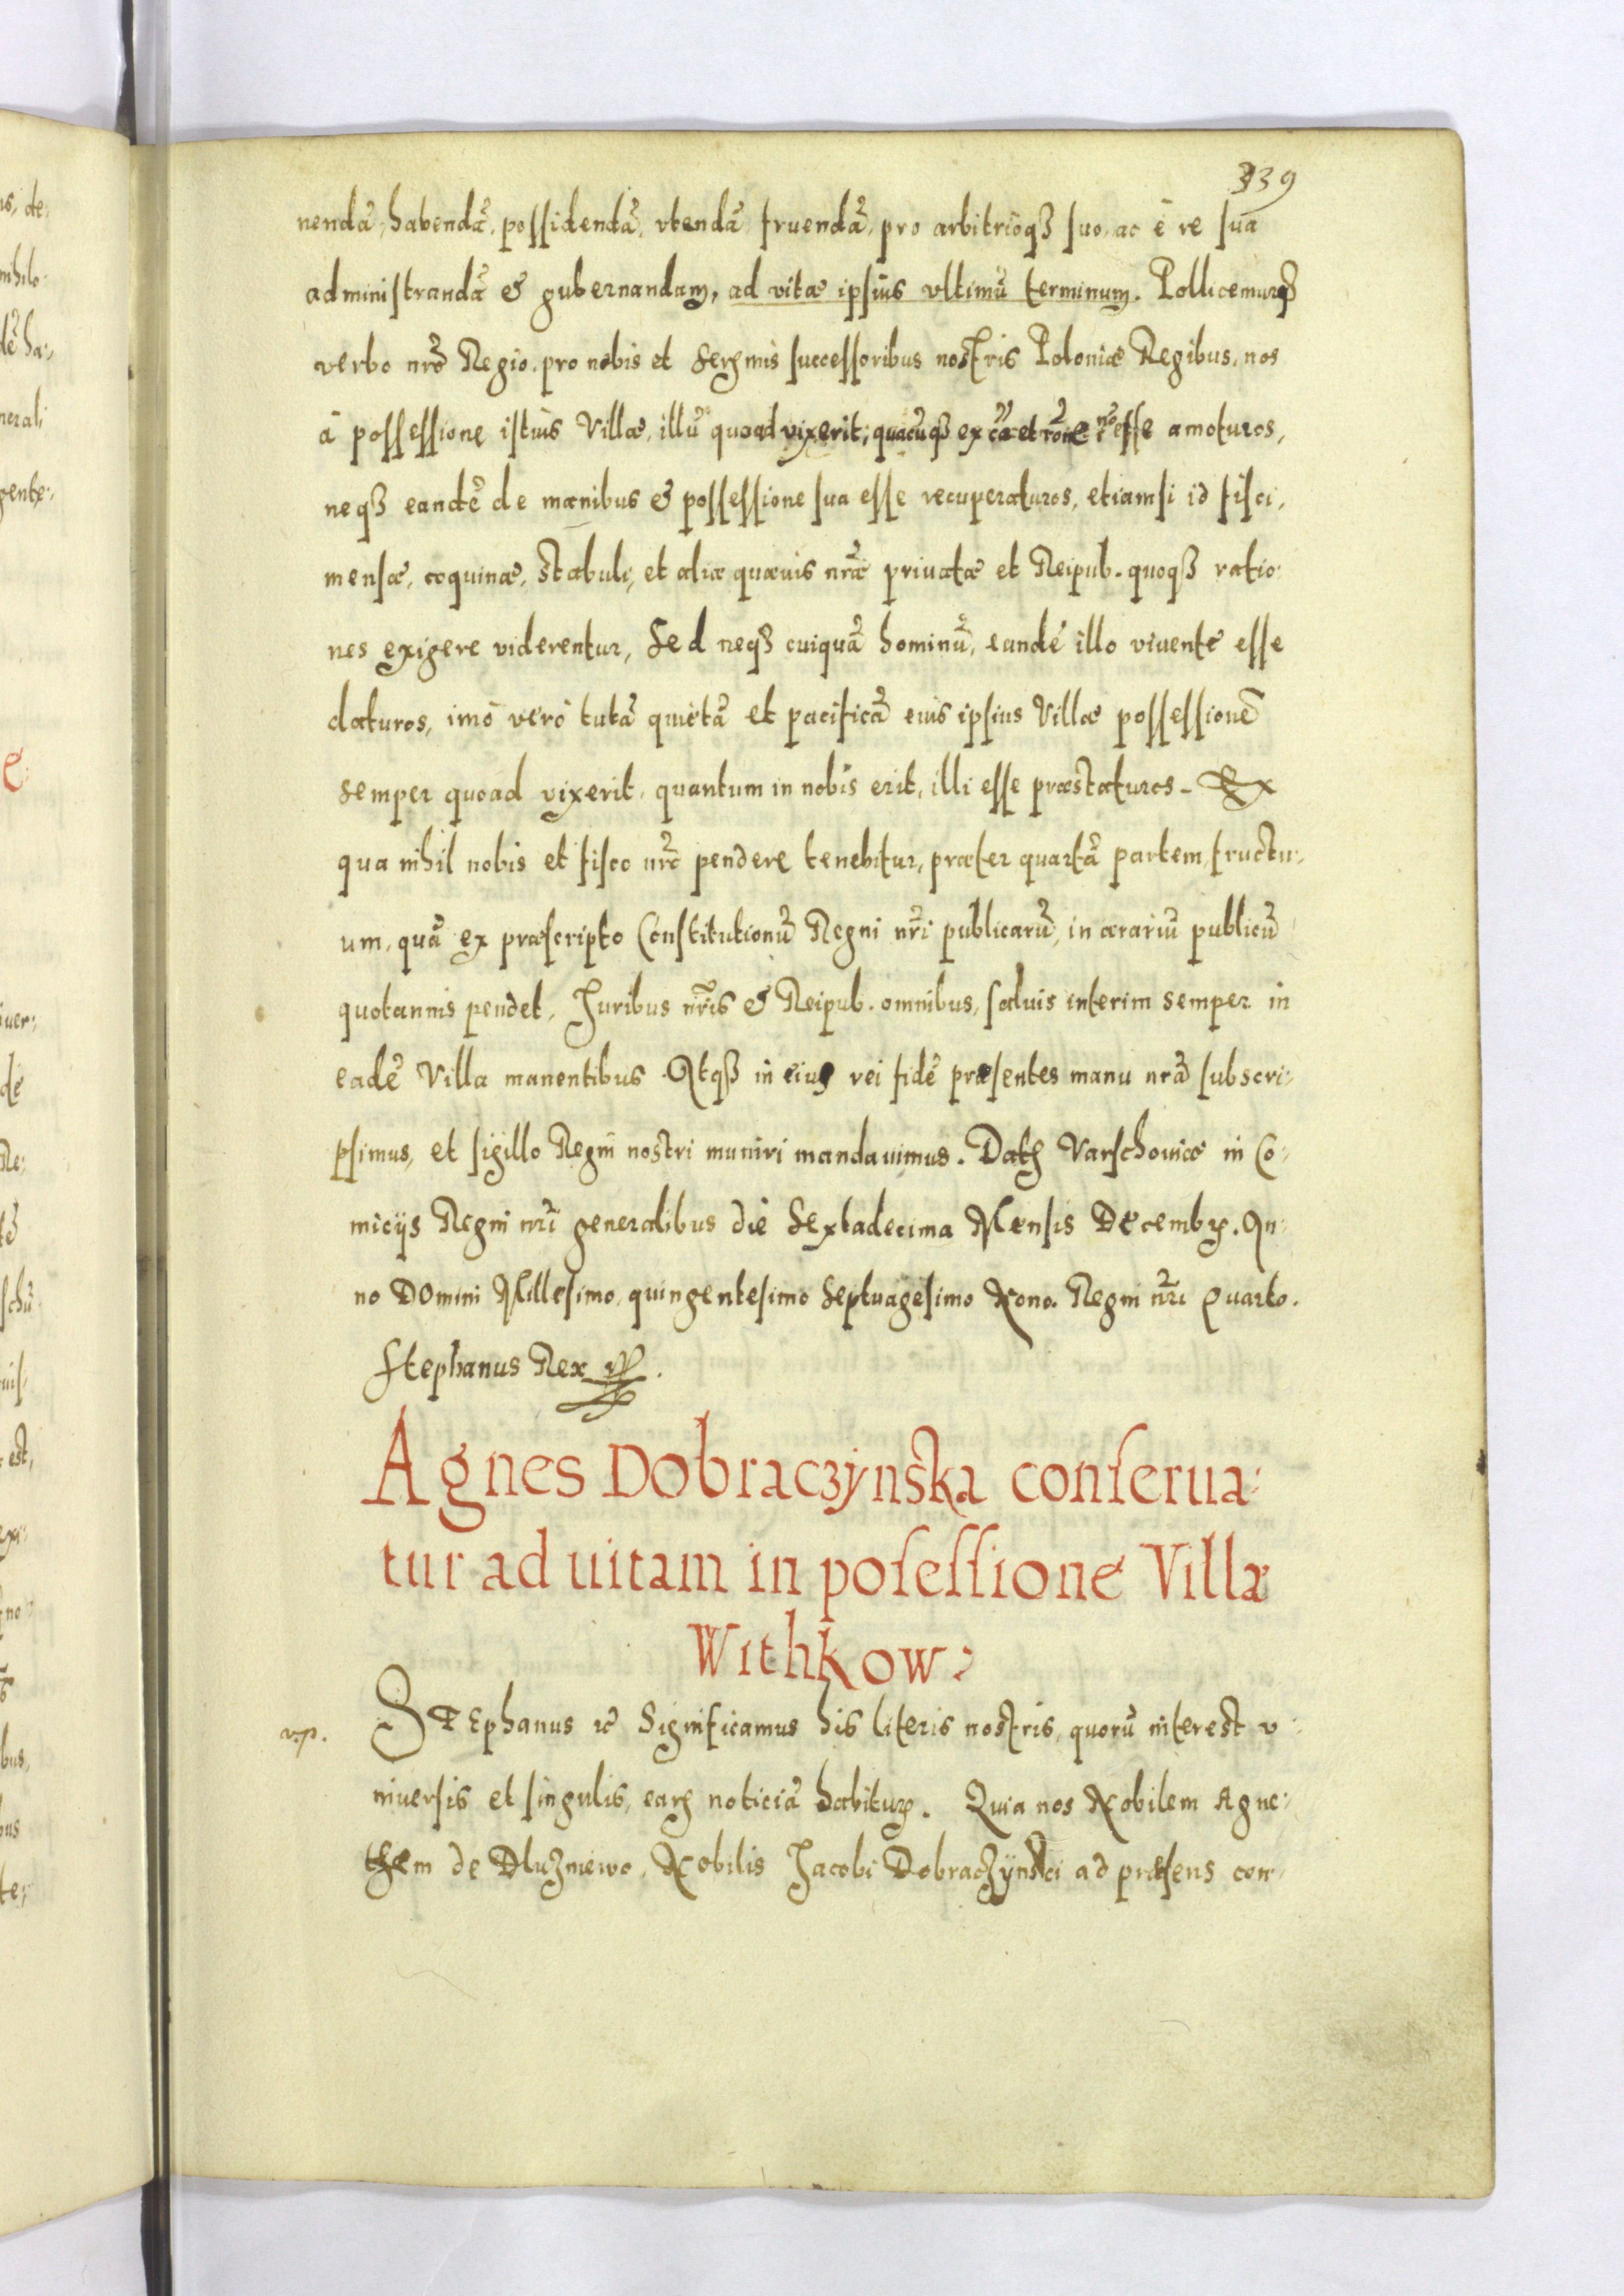 339
nendã, habendã, possidendã, vtendã fruendã, pro arbitrioqȝ suo, ac è re sua
administrandã & gubernandam, ad vitæ ipsius vltimũ terminum. Pollicemurqȝ
verbo nr̃o Regio, pro nobis et Serẽmis successoribus nostris Poloniæ Regibus, nos
à possessione istius Villæ, illũ quoad vixerit, quacũqȝ ex cã et rõne nõ esse amoturos,
neqȝ eandẽ de manibus & possessione sua esse recuperaturos, etiamsi id fisci,
mensæ, coquinæ, stabuli, et aliæ quæuis nr̃æ priuatæ et Reipub. quoqȝ ratio-
nes exigere viderentur, Sed neqȝ cuiquã hominũ, eandẽ illo viuente esse
daturos, imò verò tutã quietã et pacificã eius ipsius Villæ possessionẽ
semper quoad vixerit, quantum in nobis erit, illi esse præstaturos. Ex
qua nihil nobis et fisco nr̃o pendere tenebitur, præter quartã partem, fructu-
um, quã ex præscripto Constitutionũ Regni nr̃i publicarũ, in ærariũ publicũ
quotannis pendet, Juribus nr̃is & Reipub. omnibus, saluis interim semper in
eadẽ Villa manentibus. Atqȝ in eius rei fidẽ præsentes manu nr̃a subscri-
psimus, et sigillo Regni nostri muniri mandauimus. Datȝ Varschouiæ in Co-
micijs Regni nr̃i generalibus die Sextadecima Mensis Decembꝝ. An-
no Domini Millesimo, quingentesimo Septuagesimo Nono. Regni nr̃i Quarto.
Stephanus Rex
Agnes Dobraczÿnska conserua-
tur ad uitam in posessione Villæ
Withkow
STEphanus ꝛc̃ Significamus his literis nostris, quorũ interest v-
niuersis et singulis, eaꝝ noticiã habituꝝ. Quia nos Nobilem Agne-
them de Dluzniewo, Nobilis Jacobi Dobraczÿnski ad præsens con-